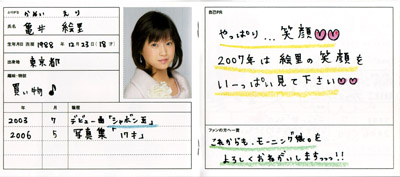 ﾌﾘｶﾞﾅ かめい えり
氏名 亀井 絵里
生年月日 西暦 1988年 12月23日(18才)
出身地 東京都
趣味・特技
買い物♪
年 月 経歴
2003 7 デビュー曲「シャボン玉」
2006 5 写真集「17才」
自己PR
やっぱり...笑顔♥♥
2007年は絵里の笑顔を
いーっぱい見て下さい♥♥
ファンの方へ一言
これからも、モーニング娘。を
よろしくおねがいしまちっっっ!!